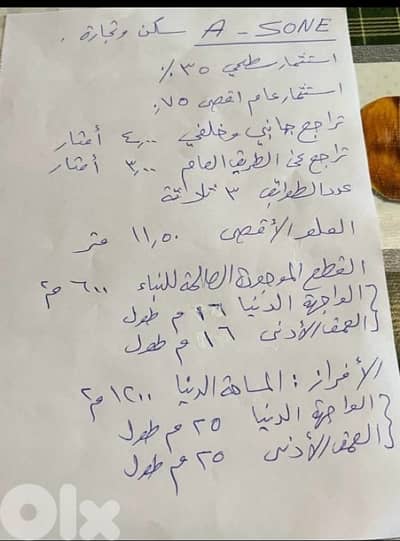 A - SONE سكن وتجارة .
استثمار سطحي ٣٥ ٪
استثمار عام اقصى ٠,٧٥
تراجع جانبي وخلفي ٤,٠٠ أمتار
تراجع عن الطريق العام ٣,٠٠ أمتار
عدد الطوابق ٣ ثلاثة
العلو الأقصى ١١,٥٠ متر
القطع الموجودة الصالحة للبناء ٦٠٠ م٢
الواجهة الدنيا ١٦ م طول
العمق الأدنى ١٦ م طول
الأفراز : المساحة الدنيا ١٢٠٠ م٢
الواجهة الدنيا ٢٥ م طول
العمق الأدنى ٢٥ م طول
OLX